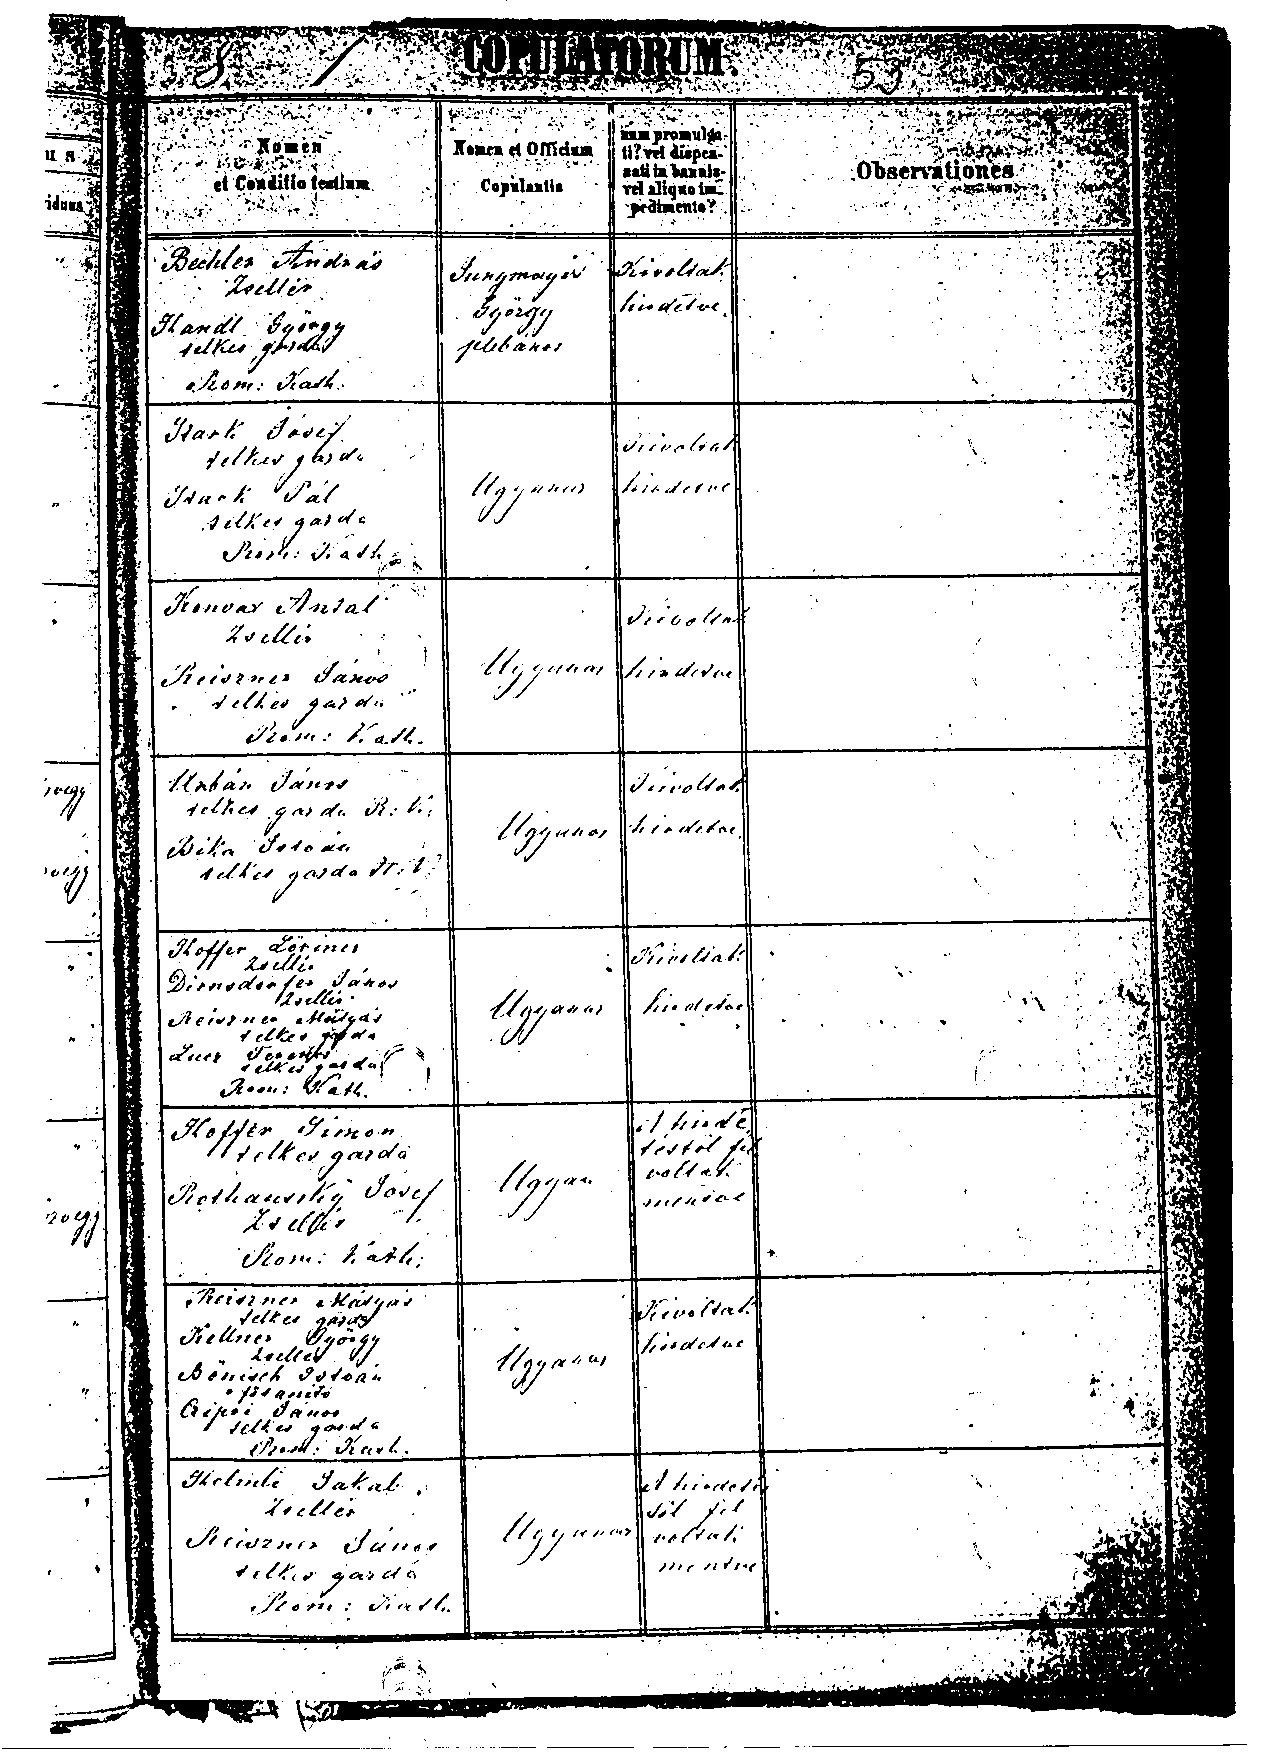 S. 1 COPULATORUM. 53
Nomen
et Conditio testium
Nomen et Officium
Copulantis
num promulga-
ti? vel dispen-
sati in bannis
vel aliquo im-
pedimento?
Observationes
Bechler András
Zsellér
Handl György
telkes gazda
Rom: Kath.
Jungmayer
György
plébános
Kivoltak
hirdetve.
Stark Josef
telkes gazda
Stark Pál
telkes gazda
Rom: Kath
Ugyanas
Kivoltak
hirdetve
Konvar Antal
Zsellér
Reiszner János
telkes gazda
Rom: Kath.
Ugyanas
Kivoltak
hirdetve
Urbán János
telkes gazda R: K:
Bika István
telkes gazda R: K:
Ugyanas
Kivoltak
hirdetve
Hoffer Lőrincz
Zsellér
Dirnsdorfer János
Zsellér
Reiszner Mátyás
telkes gazda
telkes gazda
Rom: Kath.
Ugyanas
Kivoltak
hirdetve
Hoffer Simon
telkes gazda
Rothauszky Josef
Zsellér
Rom: Kath:
Ugyan
A hirde
téstől fel
voltak
mentve
Reiszner Mátyás
telkes gazda
Kellner György
Zsellér
Bönisch István
telkes gazda
Rom: Kath.
Ugyanas
Kivoltak
hirdetve
Jakab
Zsellér
Reiszner János
telkes gazda
Rom: Kath.
Ugyanas
A hirdetés
től fel
voltak
mentve